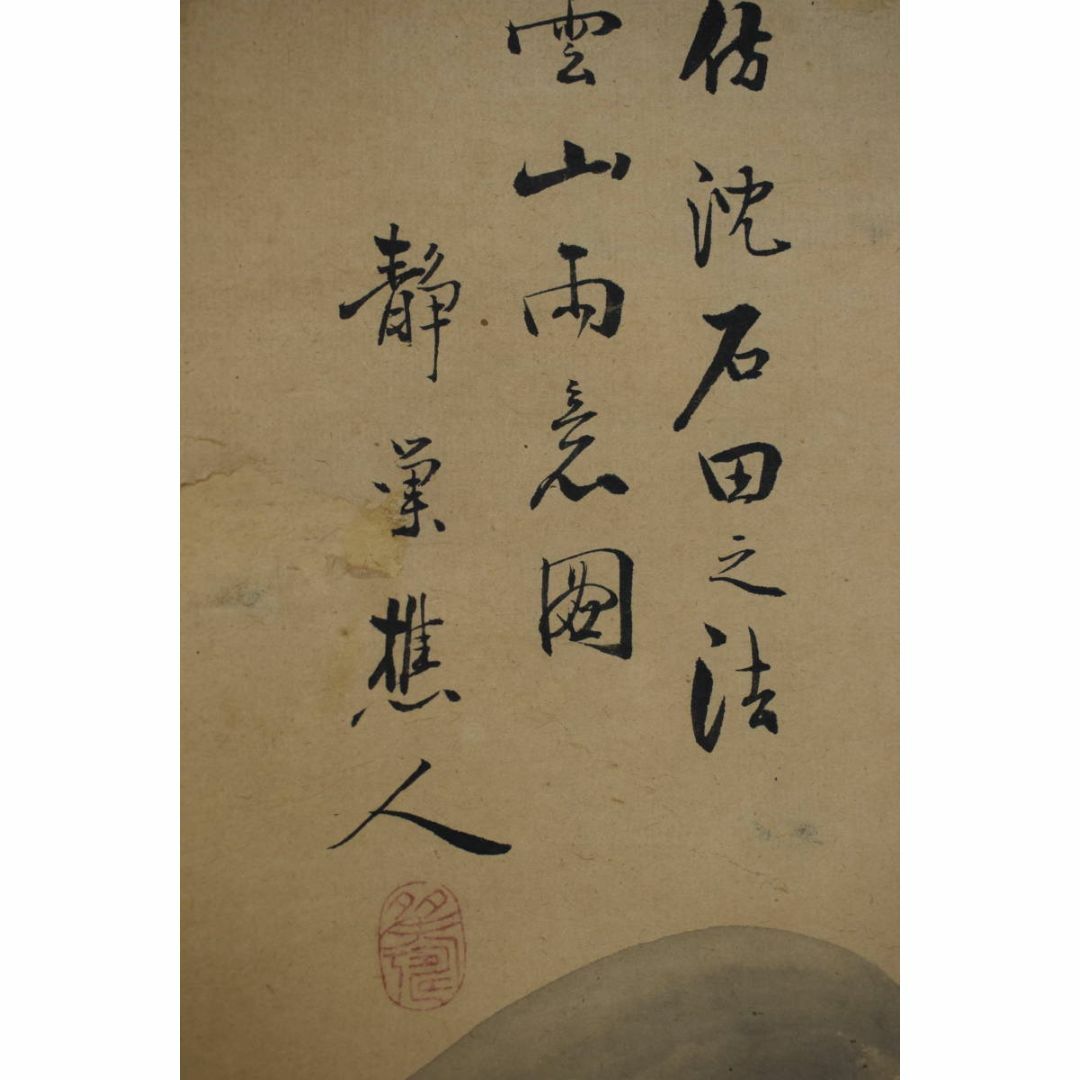 仿沈石田之法
雲山雨意圖
靜巣樵人